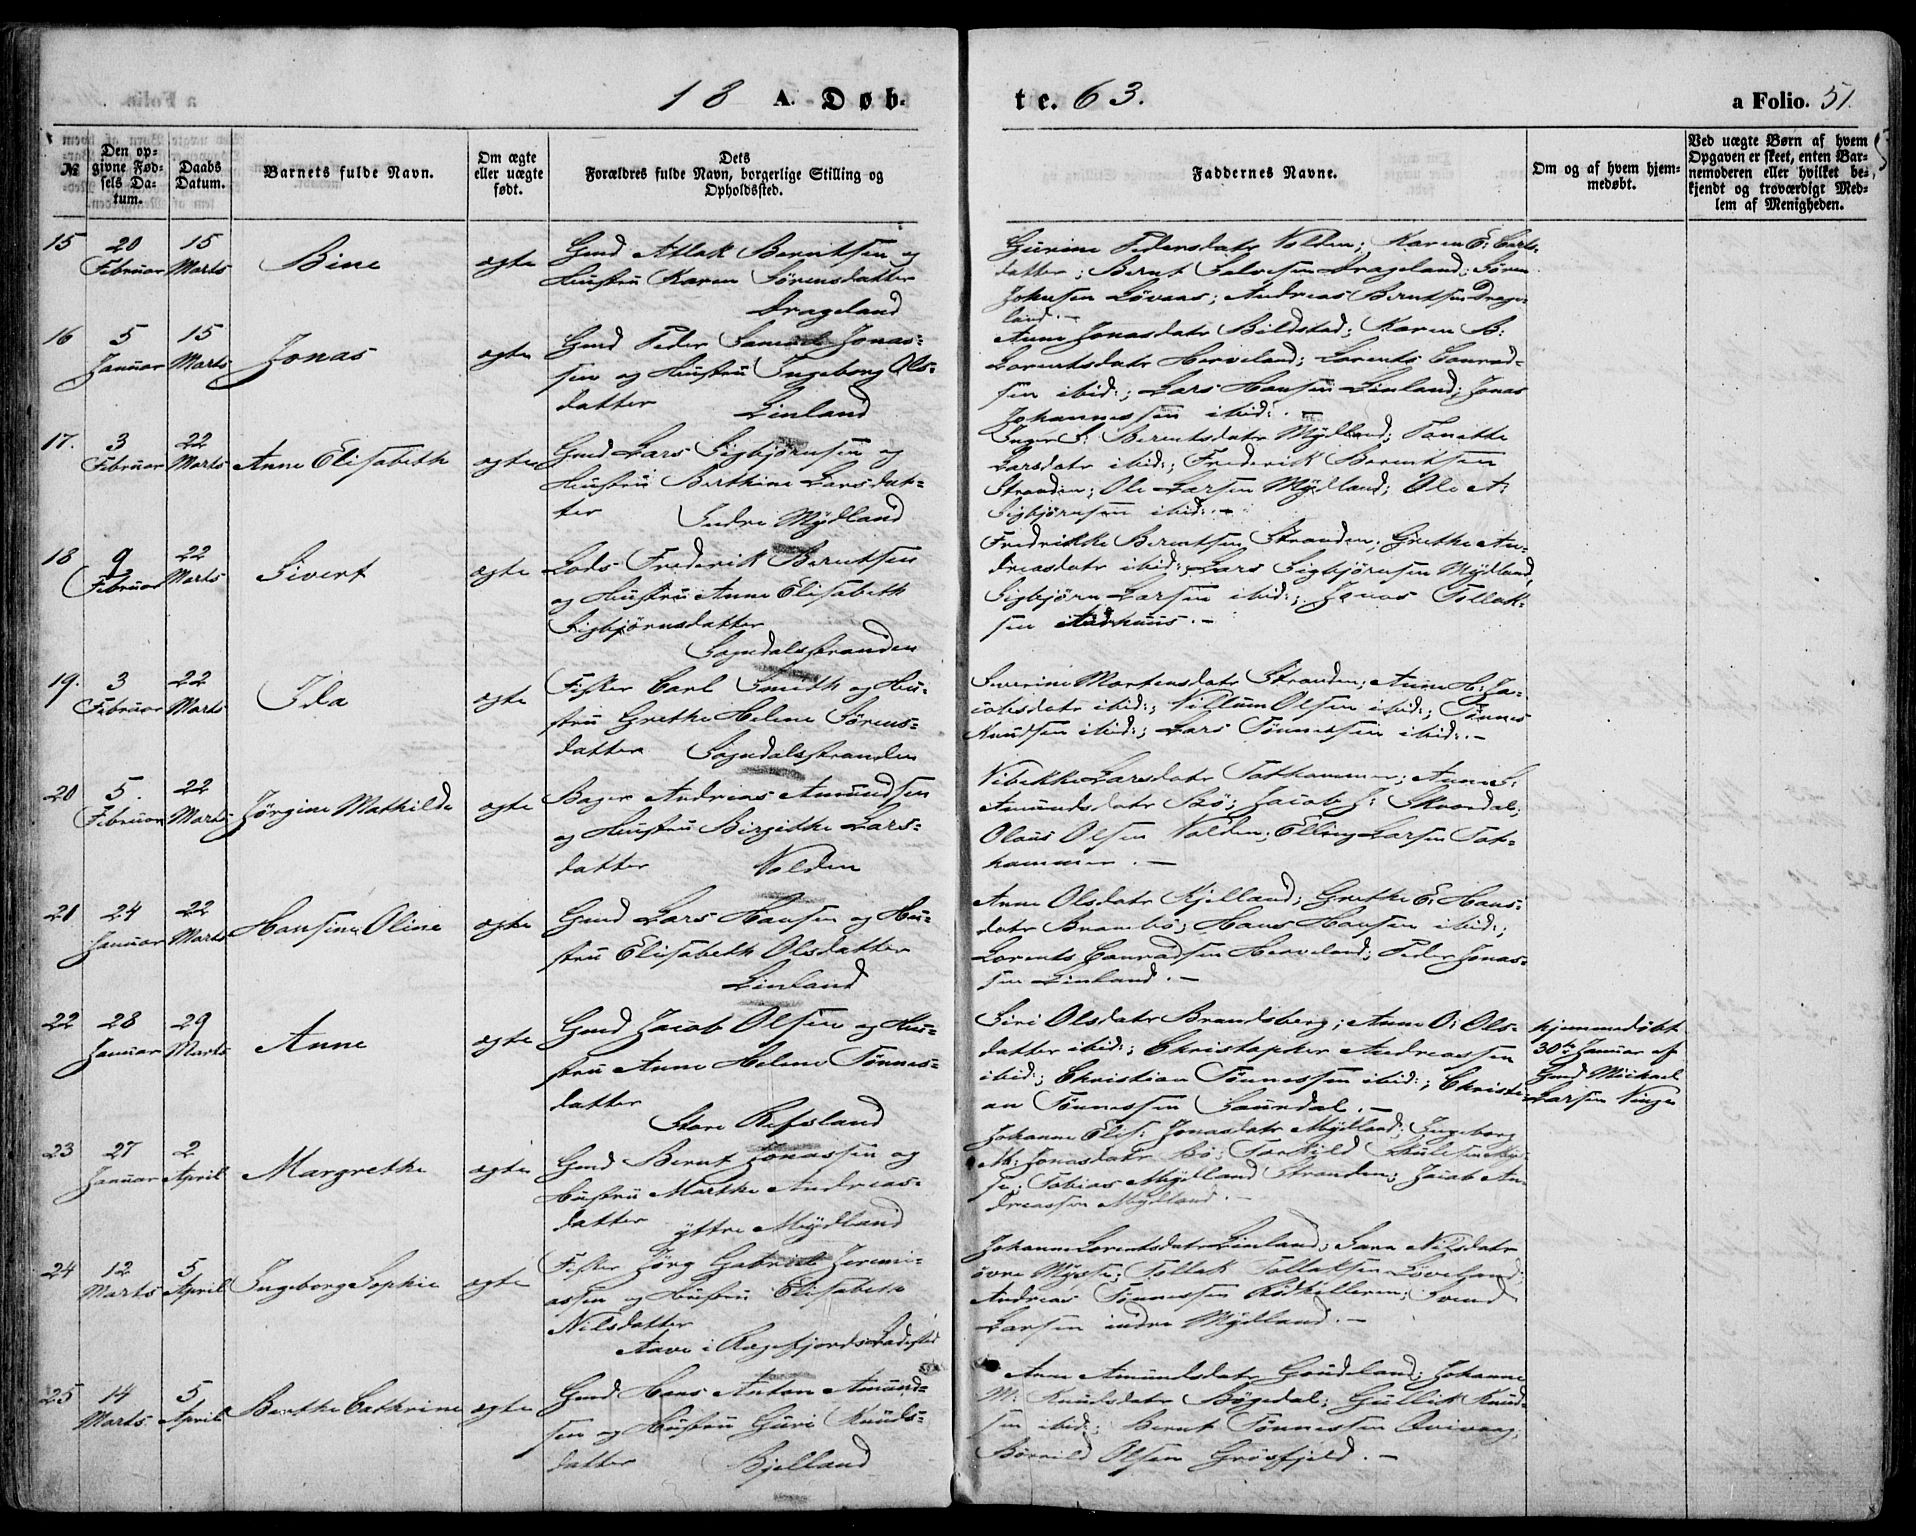 18 A. Døb-
te. 63.
a Folio. 51.
№
Den op-
givne Fød-
sels Da-
tum.
Daabs
Datum.
Barnets fulde Navn.
Om ægte
eller uægte
født.
Dets
Forældres fulde Navn, borgerlige Stilling og
Opholdssted.
Faddernes Navne.
Om og af hvem hjem-
medøbt.
Ved uægte Børn af hvem
Opgaven er skeet, enten Bar-
nemoderen eller hvilket be-
kjendt og troværdigt Med-
lem af Menigheden.
15
20
Februar
15
Marts
Bine
ægte
Gmd Atlak Berntsen og
Hustru Karen Sørensdatter
Drageland
Gurine Pedersdatr Volden; Karen E: Carls-
datter; Bernt Salvesen Drageland; Søren
Johnsen Løvaas; Andreas Berntsen Drage-
land.-
16
5
Januar
15
Marts
Jonas
ægte
Gmd Peder Samuel Jonas-
sen og Hustru Ingeborg Ols-
datter
Linland
Anne Jonasdatr Bildstad; Karen B:
Lorentsdatr Herveland; Lorents Conrad-
sen ibid:; Lars Hansen Linland; Jonas
Johannessen ibid:.
17.
3
Februar
22
Marts
Anne Elisabeth
ægte
Gmd Lars Sigbjørnsen og
Hustru Berthine Larsdat-
ter
Indre Mydland
Inger S: Berentsdatr Mydland; Tonette
Larsdatr ibid:; Frederik Berentsen
Stranden; Ole Larsen Mydland; Ole A:
Sigbjørnsen ibid:.-
18
9
Februar
22
Marts
Sivert
ægte
Lods Frederik Berentsen
og Hustru Anne Elisabeth
Sigbjørnsdatter
Sogndalsstranden
Fredrikke Berentsen Stranden; Grethe An-
dreasdatr ibid:; Lars Sigbjørnsen Mydland
Sigbjørn Larsen ibid:; Jonas Tollak-
sen Aarhuus.-
19.
3
Februar
22
Marts
Ida
ægte
Fisker Carl Smith og Hu-
stru Grethe Helene Sørens-
datter
Sogndalsstranden
Severine Mortensdatr Stranden; Anne H: Ja-
cobsdatr ibid:; Villum Olsen ibid:; Tønnes
Knudsen ibid:; Lars Tønnesen ibid:.-
20
5.
Februar
22
Marts
Jørgine Mathilde
ægte
Bager Andreas Amundsen
og Hustru Birgithe Lars-
datter
Volden
Vibekke Larsdatr Tothammer; Anne S:
Amundsdatr Bø; Jacob J: Skaardal;
Olaus Olsen Volden; Elling Larsen Tot-
hammer.-
21
24
Januar
22
Marts
Hansine Oline
ægte
Gmd Lars Hansen og Hu-
stru Elisabeth Olsdatter
Linland
Anne Olsdatr Kjelland; Grethe E: Hans-
datr Brambø; Hans Hansen ibid:;
Lorents Conradsen Herveland; Peder Jonas-
sen Linland.-
22
28
Januar
29
Marts
Anne
ægte
Gmd Jacob Olsen og Hu-
stru Anne Helene Tønnes-
datter
Store Refsland
Siri Olsdatr Brandsberg; Anne O: Ols-
datter ibid:; Christopher Andreassen
ibid:; Christian Tønnessen ibid:; Christi-
an Tønnessen Saurdal.-
hjemmedøbt
30te Januar af
Gmd Michael
Larsen Vinge
23
27
Januar
2
April
Margrethe
ægte
Gmd Bernt Jonassen og
Hustru Marthe Andreas-
datter
yttre Mydland
Johanne Elis: Jonasdatr Mydland; Ingeborg
M: Jonasdatr Bø; Torkild
Tobias Mydland Stranden; Jacob An-
dreassen Mydland.-
24
12
Marts
5
April
Ingeborg Sophie
ægte
Fisker Jørg Gabriel Jeremi-
assen og Hustru Elisabeth
Nilsdatter
Aave i Rægefjords Ladested
Johanne Lorentsdatr Linland; Sara Nilsdatr
øvre Mysse; Tollak Tollaksen Løveland;
Andreas Tønnessen Rødkilleren; Svend
Larsen indre Mydland.-
25
14
Marts
5
April
Berthe Cathrine
ægte
Gmd Hans Anton Amund-
sen og Hustru Guri Knuds-
datter
Bjelland
Anne Amundsdatr Goudeland; Johanne
M: Knudsdatr Bøgedal; Gullik Knud-
sen ibid:; Bernt Tønnessen Qvivaag;
Børrild Olsen Grøsfjeld.-